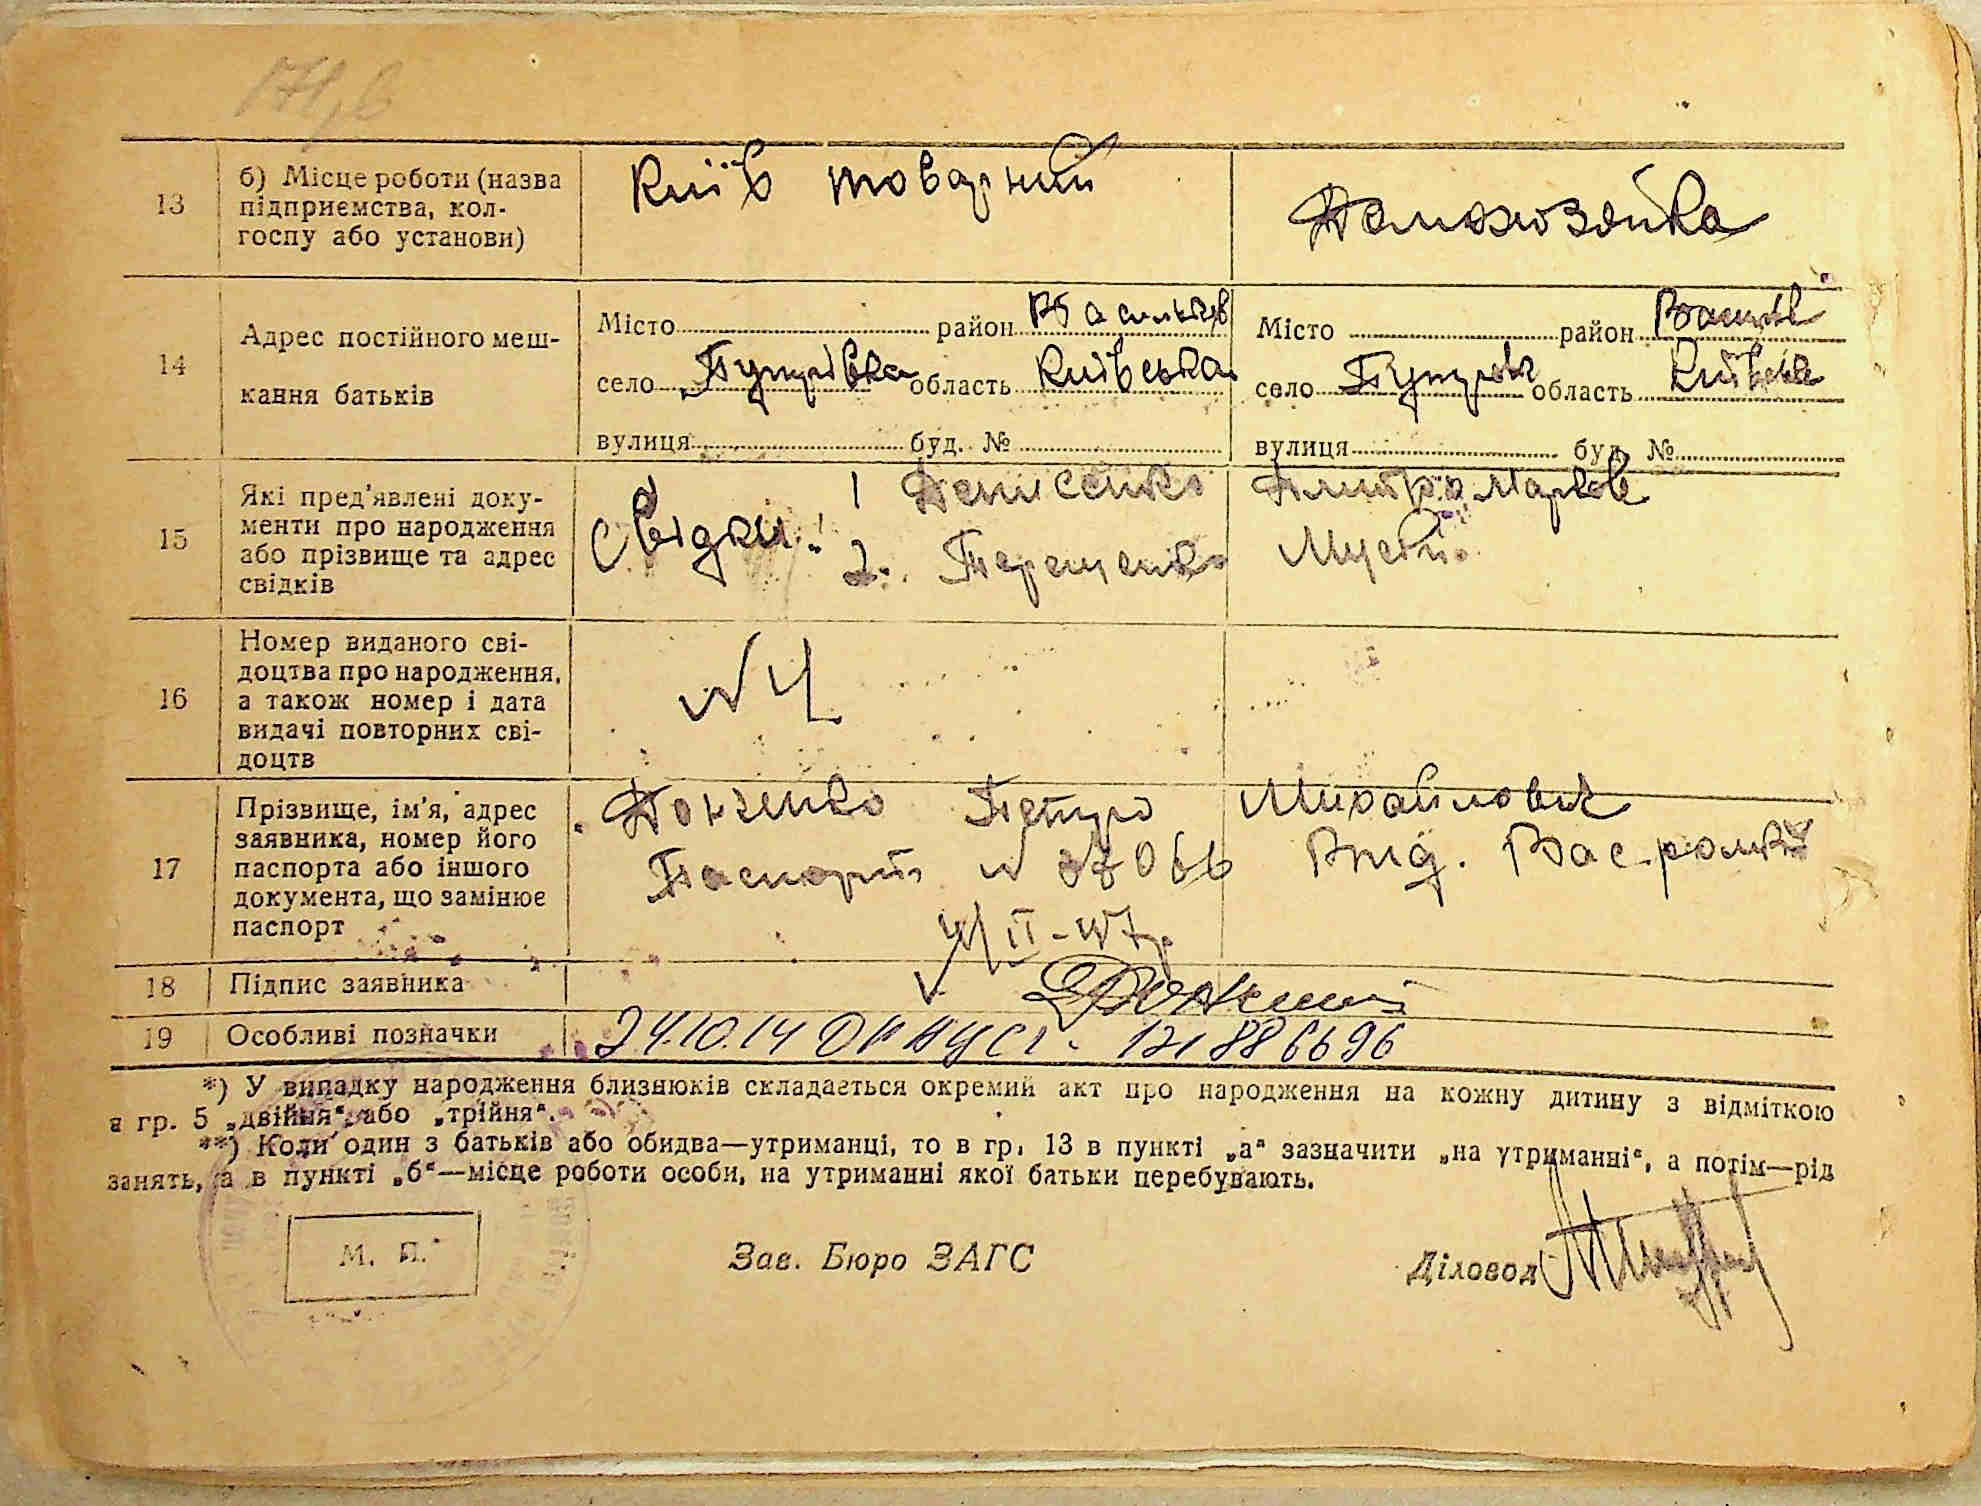 13
б) Місце роботи (назва
підприємства, кол-
госпу або установи)
Київ товарний
Домохозяйка
14
Адрес постійного меш-
кання батьків
Місто район Васильків
село Путрівка область Київська
вулиця буд. №
Місто район
село область Київська
вулиця буд. №
15
Які пред'явлені доку-
менти про народження
або прізвище та адрес
свідків
Свідки: 1 Денисенко Дмитро Марков
2. Терещенко
16
Номер виданого сві-
доцтва про народження,
а також номер і дата
видачі повторних сві-
доцтв
№ 4
17
Прізвище, ім'я, адрес
заявника, номер його
паспорта або іншого
документа, що замінює
паспорт
Донченко Петро Михайлович
Паспорт № Вид.
18
Підпис заявника
19
Особливі позначки
24.10.14
*) У випадку народження близнюків складається окремий акт про народження на кожну дитину з відміткою
в гр. 5 „двійня“ або „трійня“.
**) Коли один з батьків або обидва—утриманці, то в гр. 13 в пункті „а“ зазначити „на утриманні“, а потім—рід
занять, а в пункті „б“—місце роботи особи, на утриманні якої батьки перебувають.
М. П.
Зав. Бюро ЗАГС
Діловод